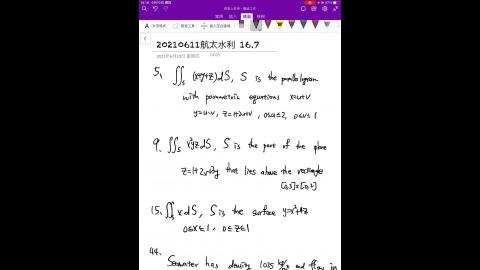 20210611航太水利 16.7
2021年6月10日 星期四
5. ∬_S (x+y+z)dS, S is the parallelogram
with parametric equations x=u+v
y=u-v, z=1+2u+v, 0≤u≤2, 0≤v≤1
9. ∬_S x²yz dS, S is the part of the plane
z=1+2x+3y that lies above the rectangle
[0,3]×[0,2]
15. ∬_S x dS, S is the surface y=x²+4z
0≤x≤1, 0≤z≤1
44.
Seawater has density 1025 kg/m³ and flow in